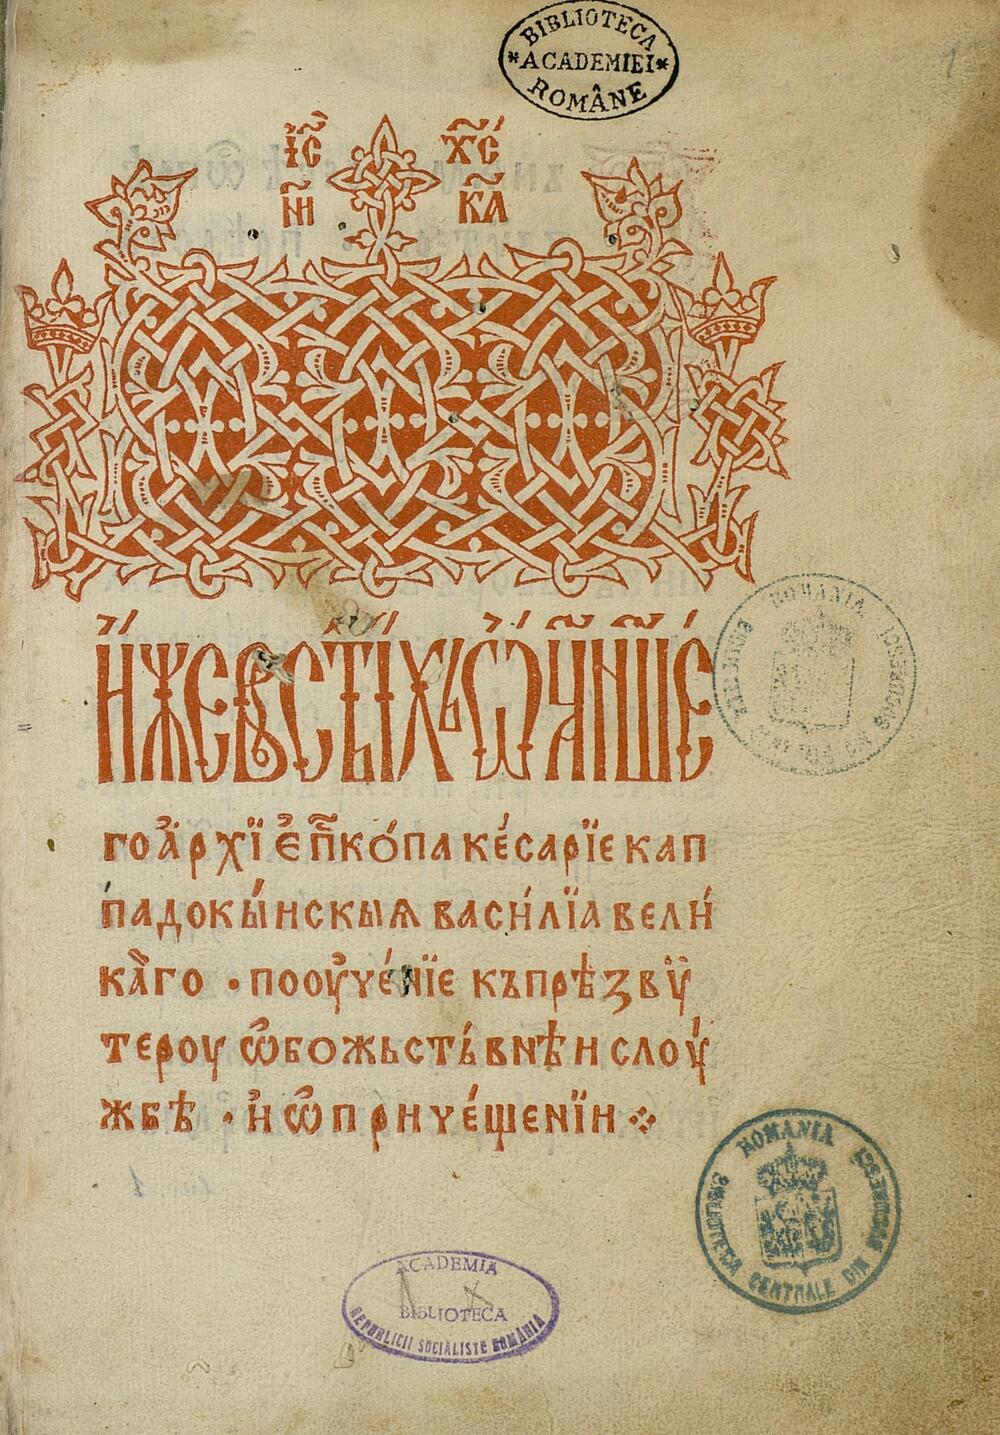 BIBLIOTECA
*ACADEMIEI*
ROMÂNE
І҆С҃ Х҃С
НИ КА
И҆́ЖЕВСТЫ́ХЪѾЦ҃АНШ҃Е
гоа҆рхїе҆пⷭ҇ко́пакеса́рїекап
падокы́искыѧвасилїавели́
ка̀го · поѹче́нїе къпрѣзвѵ
тероу ѡ҆божьствь́внѣислоу́
жбѣ · и҆ѡ҆причеще́нїи ⁘
ROMANIA
BIBLIOTECA CENTRALE DIN BUCURESCI
ROMANIA
BIBLIOTECA CENTRALE DIN BUCURESCI
ACADEMIA
BIBLIOTECA
REPUBLICII SOCIALISTE ROMÂNIA
1